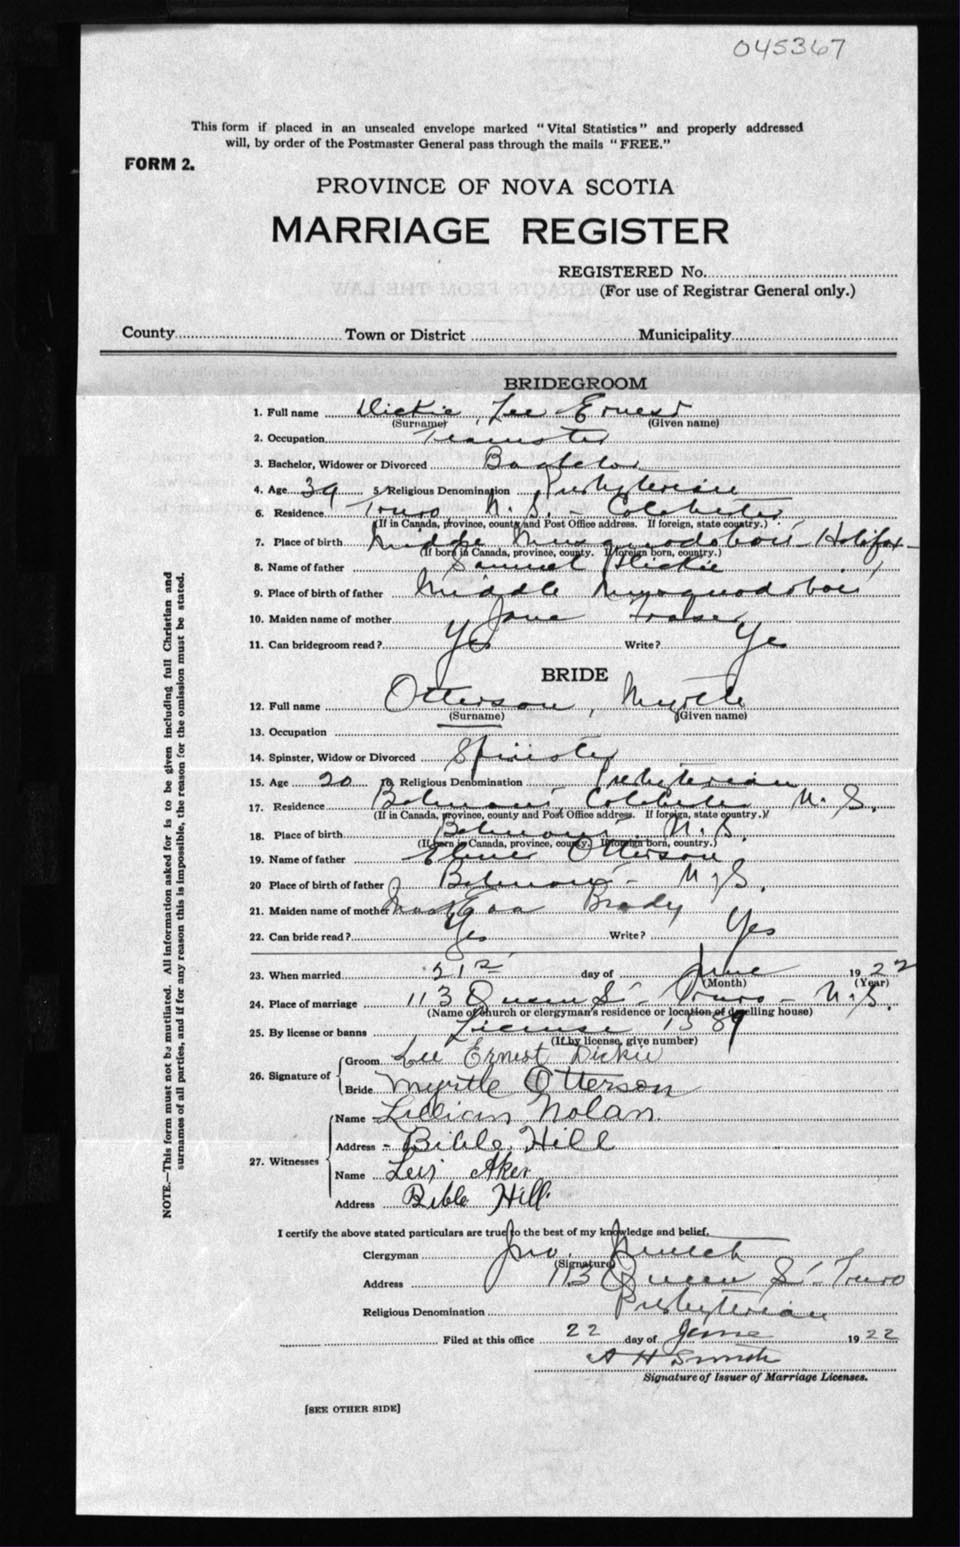 045367
This form if placed in an unsealed envelope marked "Vital Statistics" and properly addressed
will, by order of the Postmaster General pass through the mails "FREE."
FORM 2.
PROVINCE OF NOVA SCOTIA
MARRIAGE REGISTER
REGISTERED No.
(For use of Registrar General only.)
County Town or District Municipality
BRIDEGROOM
1. Full name Dickie, Lee Ernest
(Surname) (Given name)
2. Occupation Teamster
3. Bachelor, Widower or Divorced Bachelor
4. Age 39 5. Religious Denomination Presbyterian
6. Residence Truro N.S. - Colchester
(If in Canada, province, county and Post Office address. If foreign, state country.)
7. Place of birth Musquodoboit Halifax
(If born in Canada, province, county. If foreign born, country.)
8. Name of father Samuel Dickie
9. Place of birth of father Middle Musquodoboit
10. Maiden name of mother Jane Fraser
11. Can bridegroom read? Yes Write? Yes
BRIDE
12. Full name Otterson, Myrtle
(Surname) (Given name)
13. Occupation
14. Spinster, Widow or Divorced Spinster
15. Age 20 16. Religious Denomination Presbyterian
17. Residence Belmont, Colchester N.S.
(If in Canada, province, county and Post Office address. If foreign, state country.)
18. Place of birth Belmont N.S.
(If born in Canada, province, county. If foreign born, country.)
19. Name of father Otterson
20 Place of birth of father Belmont - N.S.
21. Maiden name of mother Brady
22. Can bride read? Yes Write? Yes
23. When married 21st day of June 1922
(Month) (Year)
24. Place of marriage 113 Queen St - Truro - N.S.
(Name of church or clergyman's residence or location of dwelling house)
25. By license or banns License 1589
(If by license, give number)
26. Signature of Groom Lee Ernest Dickie
Bride Myrtle Otterson
27. Witnesses Name Lillian Nolan
Address - Bible Hill
Name Aker
Address Bible Hill
NOTE.—This form must not be mutilated. All information asked for is to be given including full Christian and
surnames of all parties, and if for any reason this is impossible, the reason for the omission must be stated.
I certify the above stated particulars are true to the best of my knowledge and belief.
Clergyman Jno.
(Signature)
Address 113 Queen St - Truro
Religious Denomination Presbyterian
Filed at this office 22 day of June 1922
A H Smith
Signature of Issuer of Marriage Licenses.
[SEE OTHER SIDE]